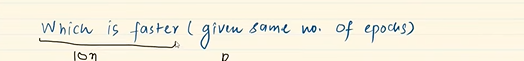 Which is faster (given same no. of epochs)
10n